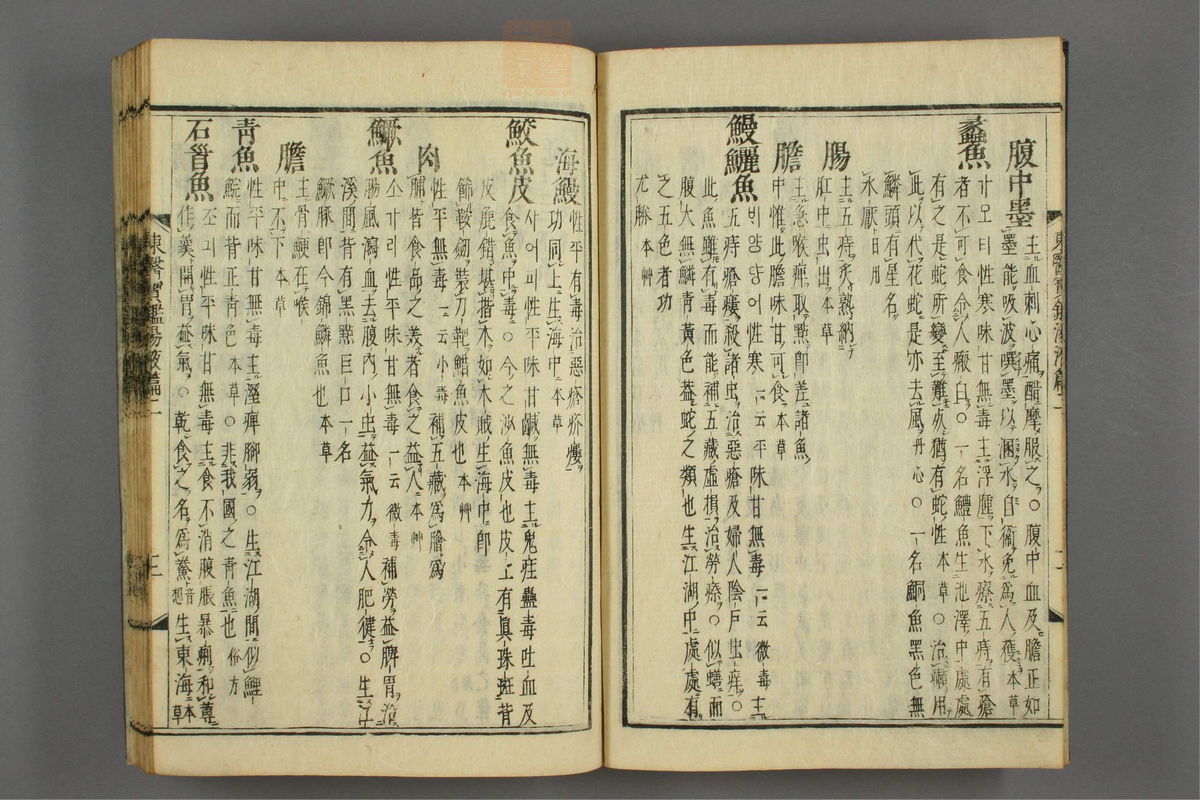 腹中墨 主血刺心痛醋摩服之○腹中血及膽正如
墨能吸波噀墨以溷水自衞免爲人獲 本草
蠡魚 가모티性寒味甘無毒主浮腫下水療五痔有瘡
者不可食令人瘢白○一名鱧魚生池澤中處處
有之是蛇所變至難死猶有蛇性 本草○治癩用
此以代花蛇是亦去風 丹心○一名鮦魚黑色無
鱗頭有星名
水厭 日用
腸 主五痔炙熟納
肛中虫出 本草
膽 主急喉痺取點即差諸魚
中惟此膽味甘可食 本草
鰻鱺魚 비얌댱어性寒 一云平味甘無毒 一云微毒主
五痔瘡瘻殺諸虫治惡瘡及婦人陰戶虫痒○
此魚雖有毒而能補五藏虛損治勞瘵○似蟮而
腹大無鱗靑黃色盖蛇之類也生江湖中處處有
之五色者功
尤勝 本艸
海鰻 性平有毒治惡瘡疥瘻
功同上生海中 本草
鮫魚皮 사어피性平味甘鹹無毒主鬼疰蠱毒吐血及
食魚中毒○今之沙魚皮也皮上有眞珠斑背
皮麄錯堪揩木如木賊生海中即
餙鞍劒裝刀靶䱜魚皮也 本艸
肉 性平無毒 一云小毒補五藏爲膾爲
脯皆食品之美者食之益人 本艸
鱖魚 소가리性平味甘無毒 一云微毒補勞益脾胃治
腸風瀉血去腹內小虫益氣力令人肥健○生江
溪間背有黑點巨口一名
鱖豚即今錦鱗魚也 本草
膽 主骨鯁在喉
中不下 本草
靑魚 性平味甘無毒主濕痺脚弱○生江湖間似鯉
鯇而背正靑色 本草○非我國之靑魚也 俗方
石首魚 조긔性平味甘無毒主食不消腹脹暴痢和蓴
作羹開胃益氣○乾食之名爲鯗音想生東海 本草
東醫寶鑑湯液篇二 二
東醫寶鑑湯液篇二 三